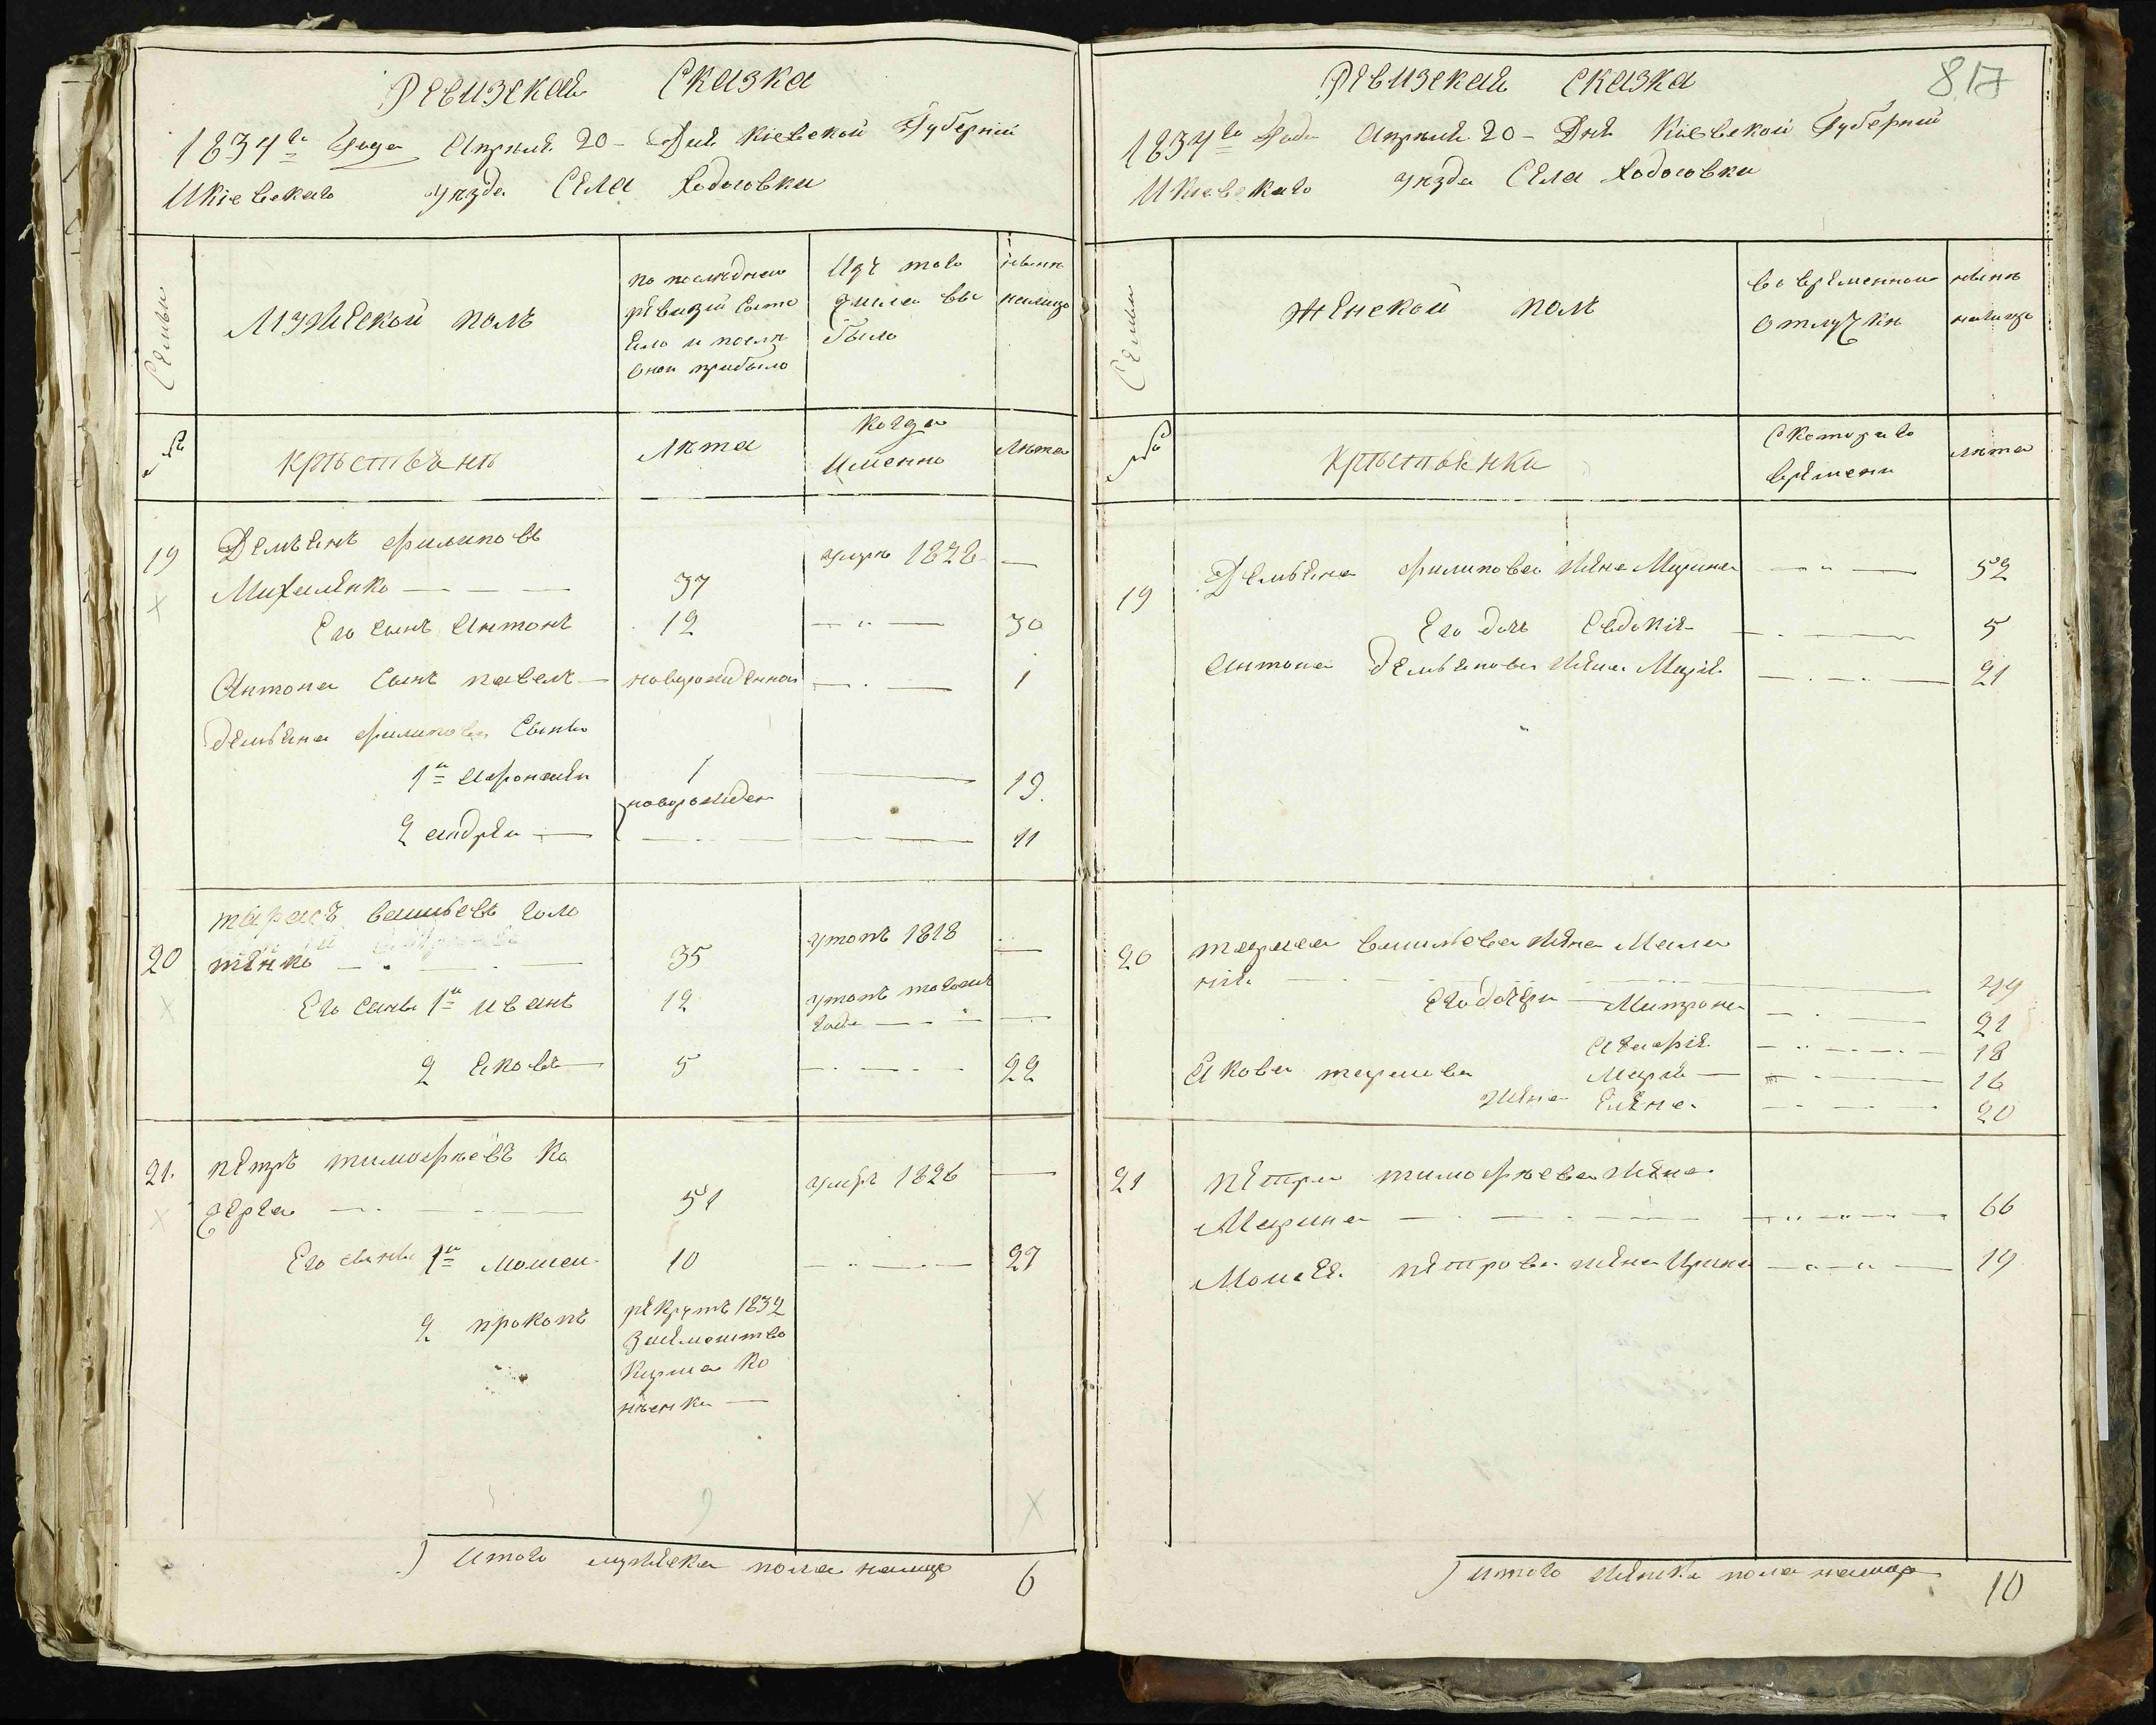 Ревизская Сказка
1834го Года Апреля 20 - Дня Кіевской Губерніи
И Кіевскаго уѣзда Села Ходосовки
Семьи
Мужеской полъ
по последнею
ревизіи состо
яло и посля
оной прибыло
Изъ того
числа вы
было
нынѣ
налицо
№
крѣстьянѣ
Лѣта
когда
именно
Лѣта
19
Демьянъ Филиповъ
Михаленко — — —
37
умръ 1828
—
Его сынъ Антонъ
12
30
Антона сынъ павелъ —
новорожденной
1
демьяна филипова сыны
1й Афонасѣи
1
19.
2 андрѣи —
новорожден
11
20
тарасъ васильевъ голо
тенко
35
утопъ 1818
—
Его сыны 1й иванъ
12
утопъ тогожъ
года — —
2 Яковъ
5
22
21.
пѣтръ тимофѣевъ Ко
черга
51
умръ 1826
—
Его сыны 1й моисеи
10
27
2 прокопъ
рекрутъ 1832
Итого мужеска пола налицо
6
Ревизская сказка
817
1834го Года Апреля 20 - Дня Кіевской Губерніи
И Кіевскаго уѣзда Села Ходосовки
Семьи
Женской полъ
во временной
отлучкѣ
нынѣ
налицо
№
крѣстьянки
С котораго
времени
лѣта
19
Демьяна филипова жена Марина
52
Его дочь Евдокія
5
Антона демьянова жена Марія
21
20
тараса васильева жена Мела
нія
49
Его дочери Матрона
21
Агафія
18
Марія —
16
Якова тарасова
жена Елена
20
21
пѣтра тимофѣева жена
Марина
66
Моисея пѣтрова жена Ирина
19
Итого женска пола налицо
10